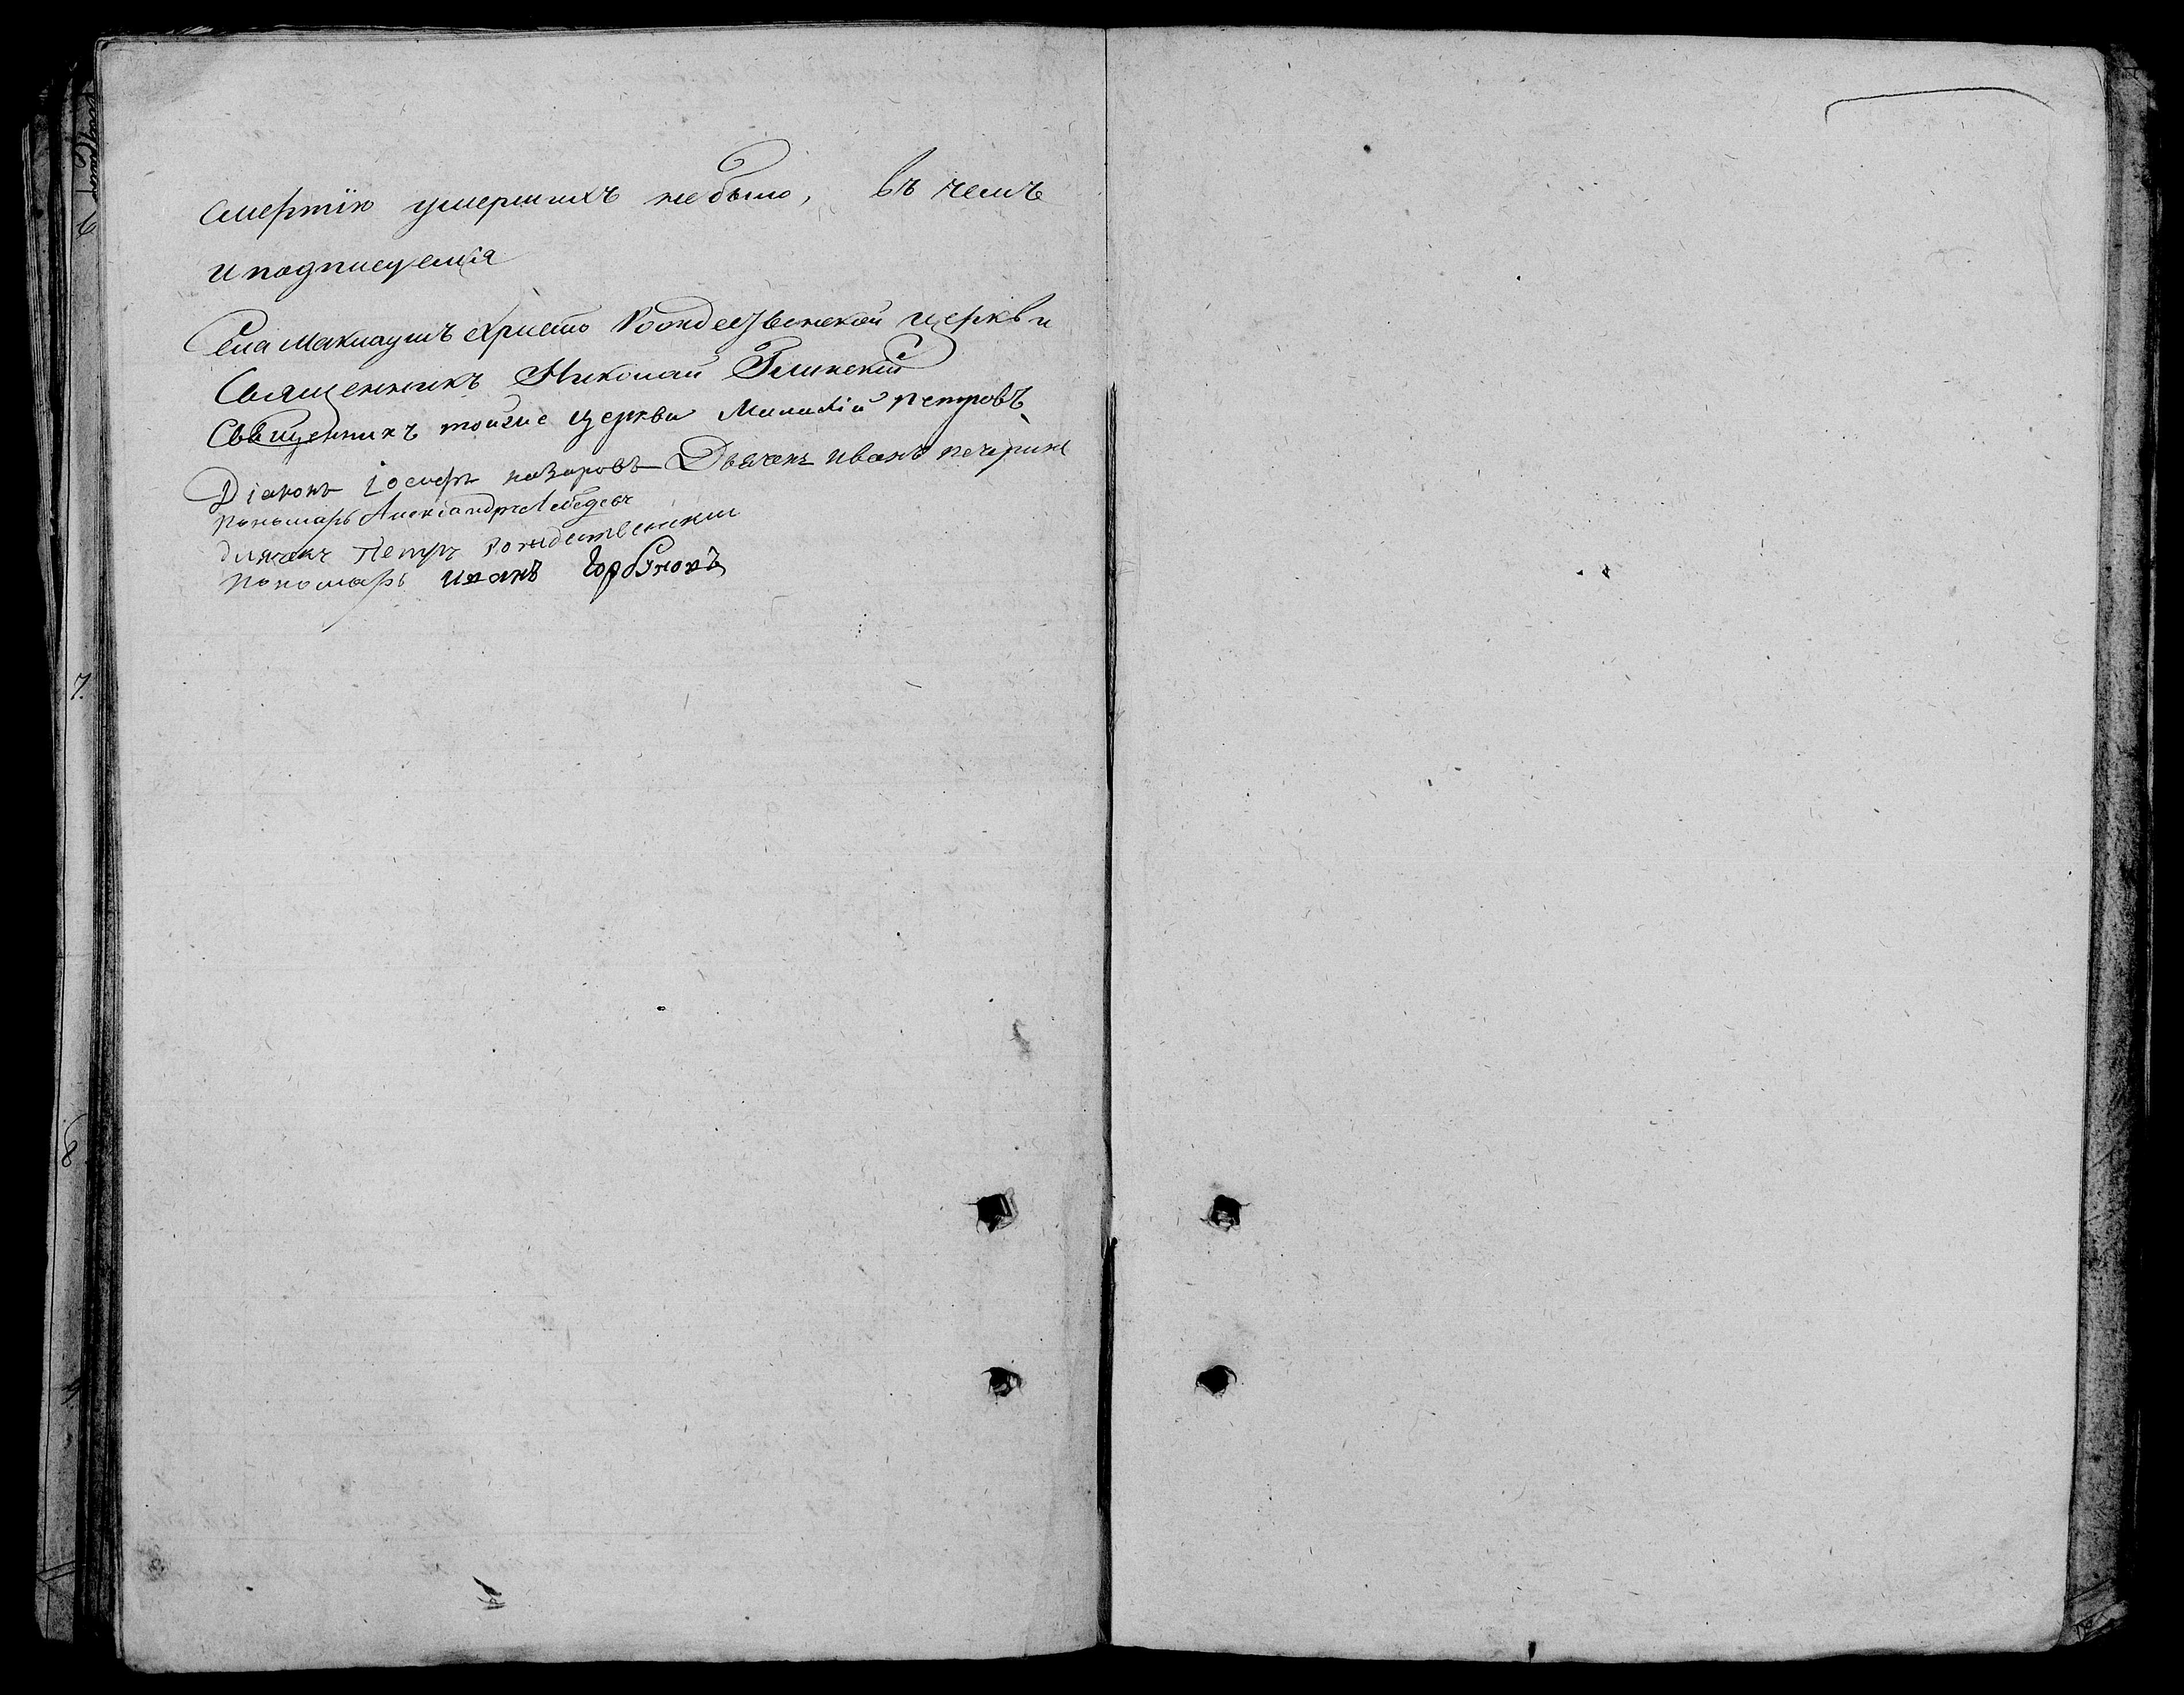 смертію умершихъ небыло, въ чемъ
и подписуемся
Села Маклаушъ Христо Рождественской церкви
Священникъ Николай Глинскій
Священникъ тойже церкви Петровъ
Діаконъ Іосифъ назаровъ Дьячекъ иванъ
пономарь Александръ Лебедевъ
дьячекъ Петръ рождественскии
пономарь иванъ горбуновъ
7.
8